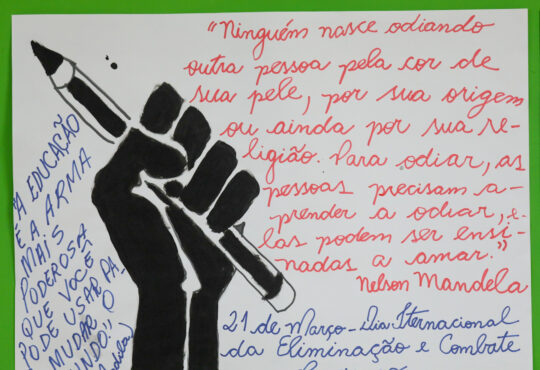 "Ninguém nasce odiando
outra pessoa pela cor de
sua pele, por sua origem
ou ainda por sua re-
ligião. Para odiar, as
pessoas precisam a-
prender a odiar, e-
las podem ser ensi-
nadas a amar."
Nelson Mandela
"A EDUCAÇÃO
É A ARMA
MAIS
PODEROSA
QUE VOCÊ
PODE USAR PA-
MUDAR O
MUNDO".
21 de Março - Dia Iternacional
da Eliminação e Combate